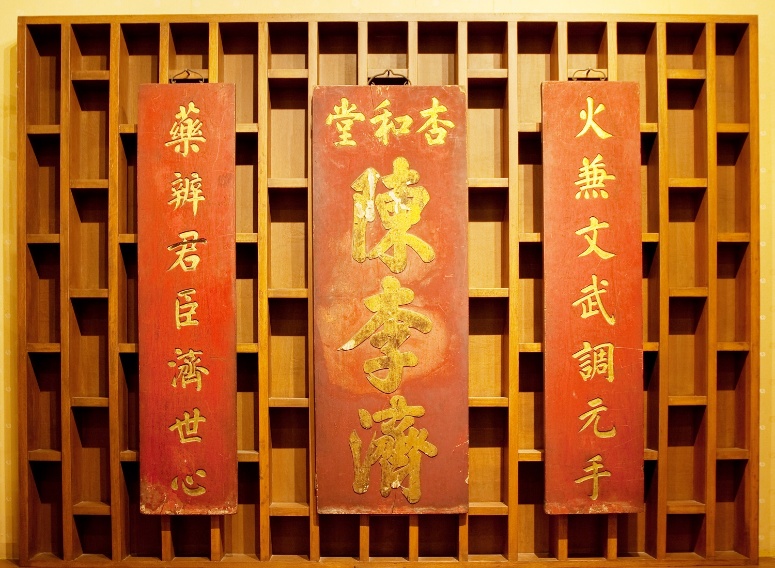 杏和堂
陳李濟
火兼文武調元手
藥辨君臣濟世心